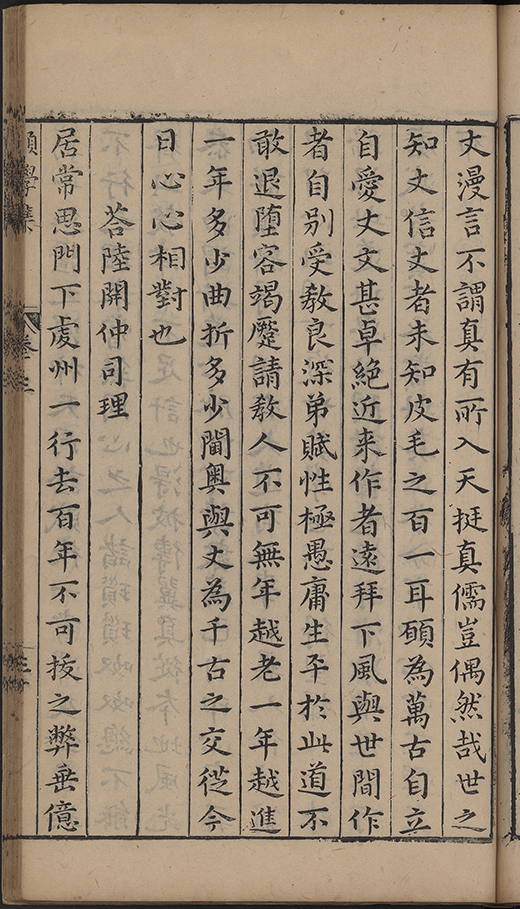 丈漫言不謂真有所入天挺真儒豈偶然哉世之
知丈信丈者未知皮毛之百一耳願為萬古自立
自愛丈文甚卓絕近来作者遠拜下風與世間作
者自別受教良深弟賦性極愚庸生平於此道不
敢退堕容竭蹷請教人不可無年越老一年越進
一年多少曲折多少閫奥與丈為千古之交從今
日心心相對也
荅陸開仲司理
居常思門下處州一行去百年不可拔之弊垂億
學集
卷